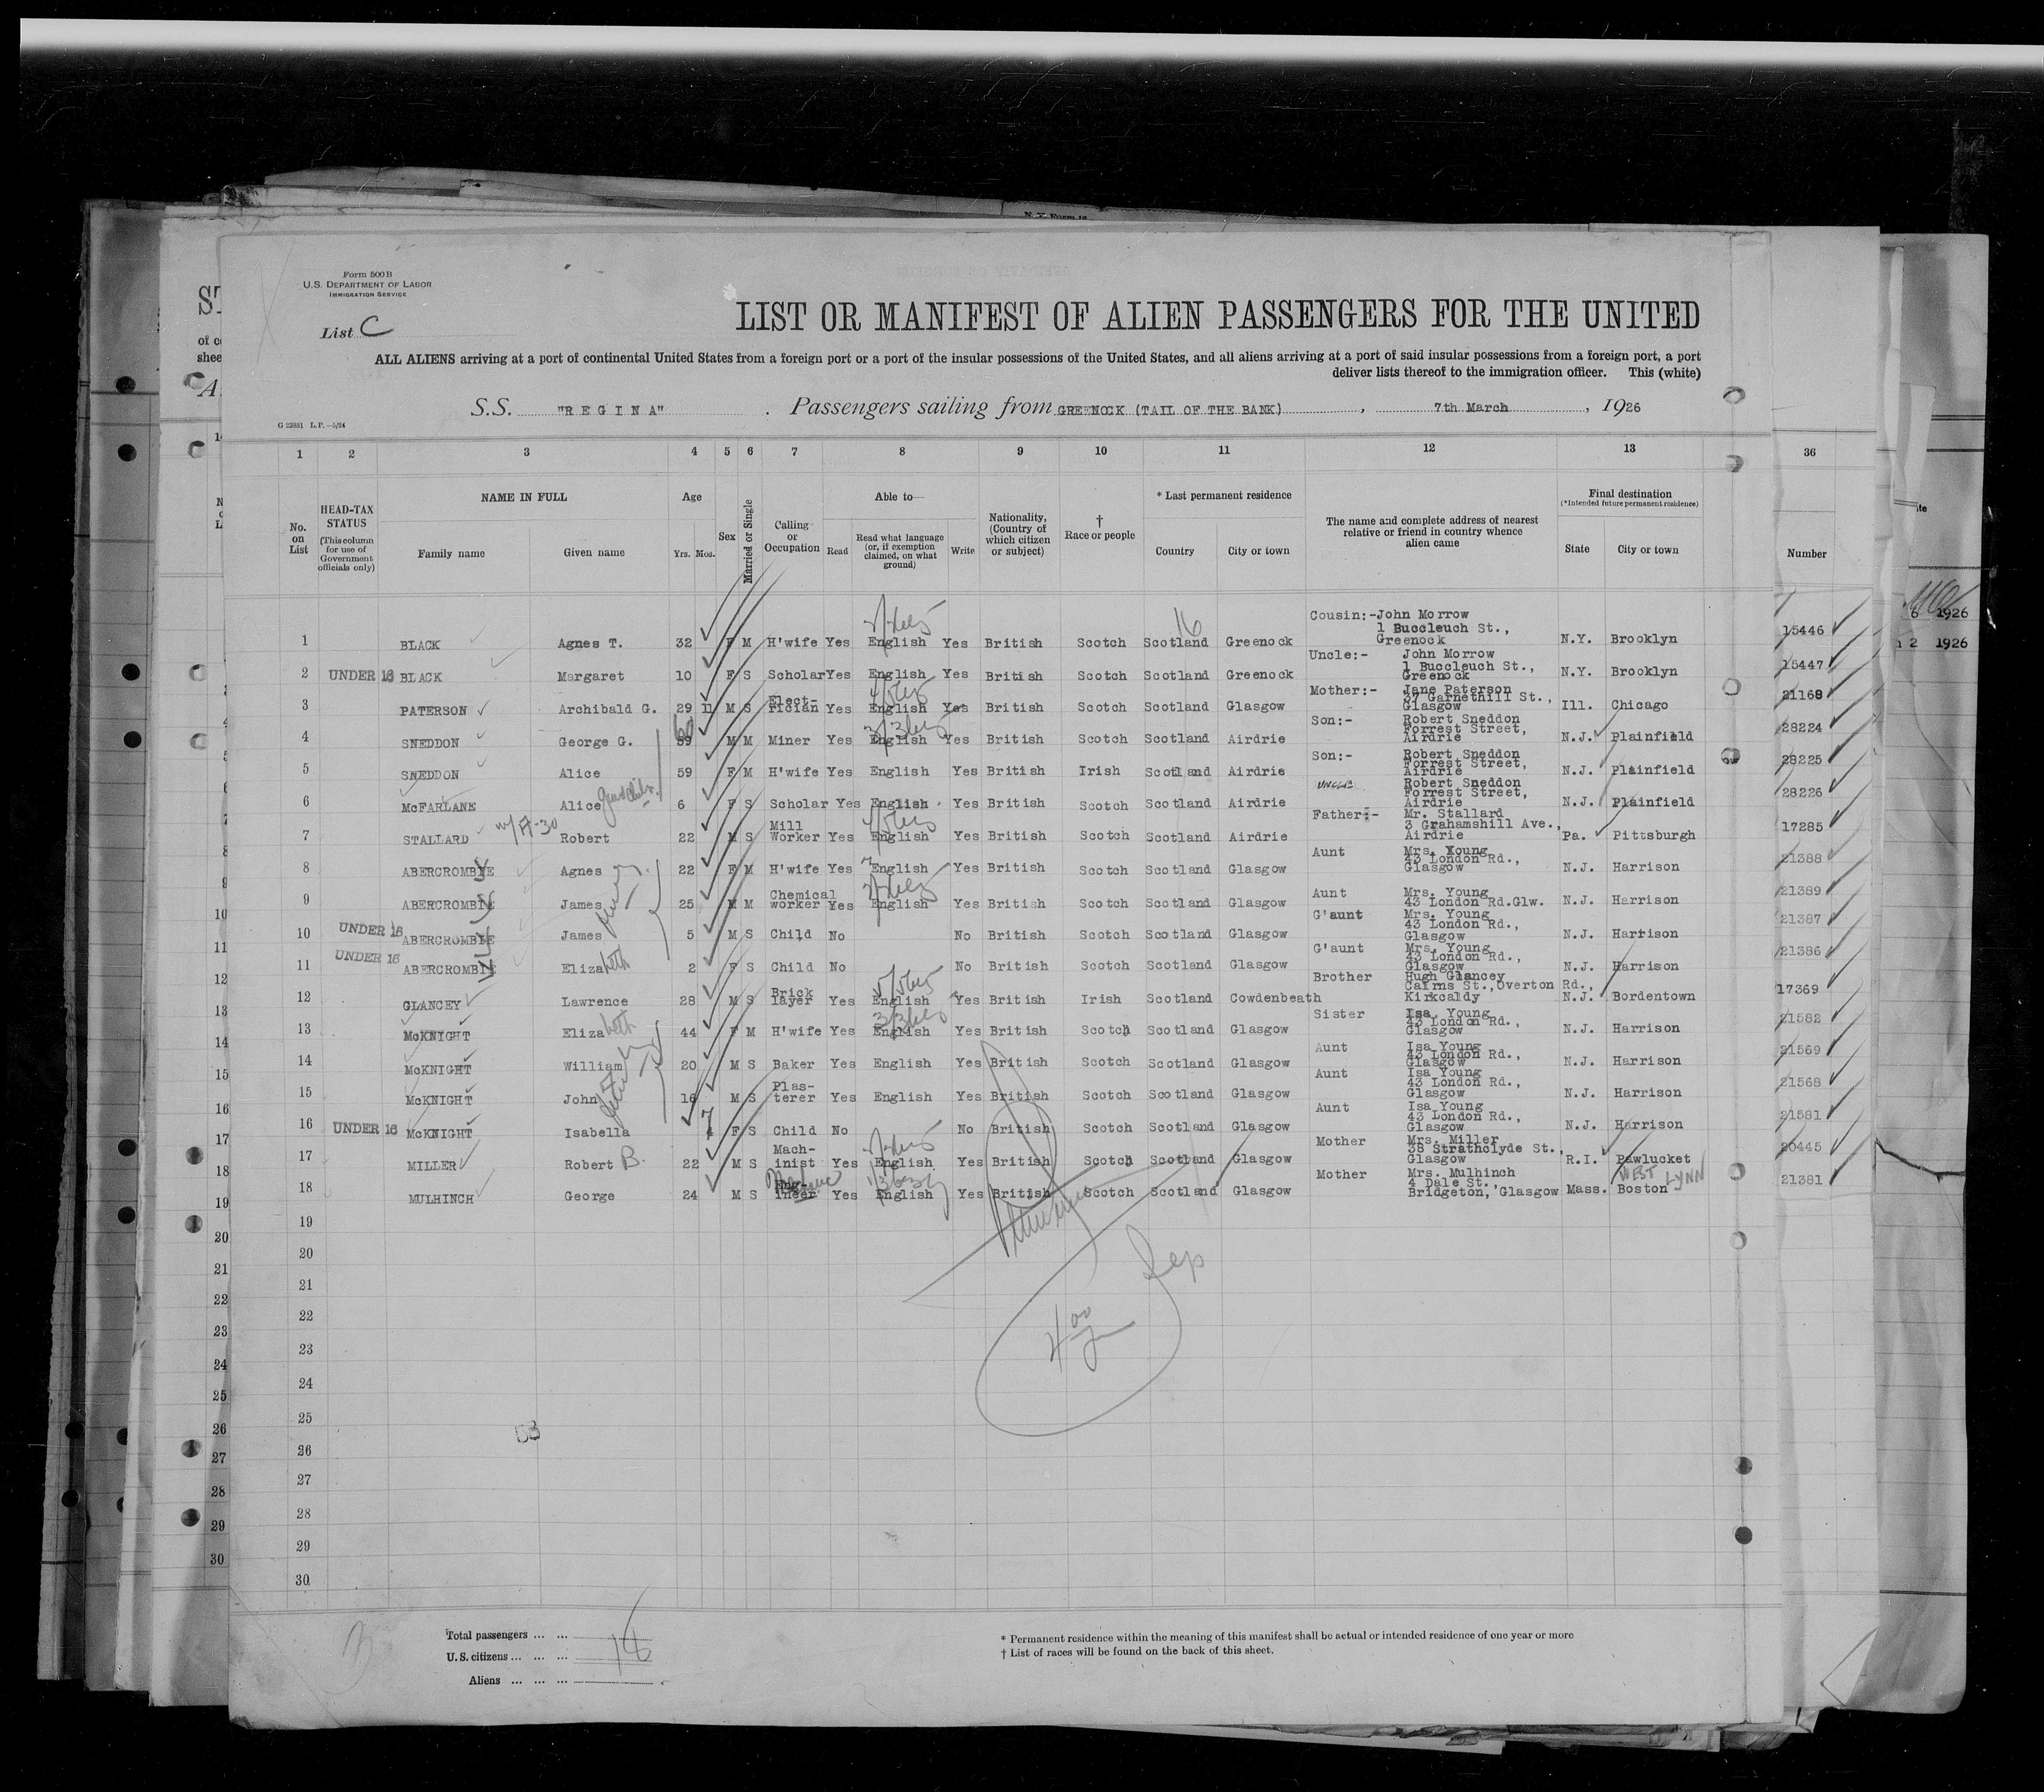 Form 500 B
U.S. DEPARTMENT OF LABOR
IMMIGRATION SERVICE
List C
LIST OR MANIFEST OF ALIEN PASSENGERS FOR THE UNITED
ALL ALIENS arriving at a port of continental United States from a foreign port or a port of the insular possessions of the United States, and all aliens arriving at a port of said insular possessions from a foreign port, a port
deliver lists thereof to the immigration officer. This (white)
S.S. "REGINA". Passengers sailing from GREENOCK (TAIL OF THE BANK), 7th March, 1926
G 23881 L.P.—5/24
1 2 3 4 5 6 7 8 9 10 11 12 13 36
No. on List
HEAD-TAX STATUS (This column for use of Government officials only)
NAME IN FULL
Family name Given name
Age
Yrs. Mos.
Sex
Married or Single
Calling or Occupation
Able to—
Read
Read what language (or, if exemption claimed, on what ground)
Write
Nationality, (Country of which citizen or subject)
† Race or people
* Last permanent residence
Country City or town
The name and complete address of nearest relative or friend in country whence alien came
Final destination
(*Intended future permanent residence)
State City or town
Number
16
1 BLACK Agnes T. 32 F M H'wife Yes English Yes British Scotch Scotland Greenock Cousin:-John Morrow 1 Buccleuch St., Greenock N.Y. Brooklyn 15446
2 UNDER 16 BLACK Margaret 10 F S Scholar Yes English Yes British Scotch Scotland Greenock Uncle:- John Morrow 1 Buccleuch St., Greenock N.Y. Brooklyn 15447
3 PATERSON Archibald G. 29 11 M S Elect-rician Yes English Yes British Scotch Scotland Glasgow Mother:- Jane Paterson 37 Garnethill St., Glasgow Ill. Chicago 21168
4 SNEDDON George G. 59 60 M M Miner Yes English Yes British Scotch Scotland Airdrie Son:- Robert Sneddon Forrest Street, Airdrie N.J. Plainfield 28224
5 SNEDDON Alice 59 F M H'wife Yes English Yes British Irish Scotland Airdrie Son:- Robert Sneddon Forrest Street, Airdrie N.J. Plainfield 28225
6 McFARLANE Alice 6 F S Scholar Yes English Yes British Scotch Scotland Airdrie UNCLE Robert Sneddon Forrest Street, Airdrie N.J. Plainfield 28226
7 STALLARD Robert 22 M S Mill Worker Yes English Yes British Scotch Scotland Airdrie Father:- Mr. Stallard 3 Grahamshill Ave., Airdrie Pa. Pittsburgh 17285
8 ABERCROMBIE Agnes 22 F M H'wife Yes English Yes British Scotch Scotland Glasgow Aunt Mrs. Young 43 London Rd., Glasgow N.J. Harrison 21388
9 ABERCROMBIE James 25 M M Chemical worker Yes English Yes British Scotch Scotland Glasgow Aunt Mrs. Young 43 London Rd.Glw. N.J. Harrison 21389
10 UNDER 16 ABERCROMBIE James 5 M S Child No No British Scotch Scotland Glasgow G'aunt Mrs. Young 43 London Rd., Glasgow N.J. Harrison 21387
11 UNDER 16 ABERCROMBIE Elizabeth 2 F S Child No No British Scotch Scotland Glasgow G'aunt Mrs. Young 43 London Rd., Glasgow N.J. Harrison 21386
12 GLANCEY Lawrence 28 M S Brick layer Yes English Yes British Irish Scotland Cowdenbeath Brother Hugh Glancey Cairns St., Overton Rd., Kirkcaldy N.J. Bordentown 17369
13 McKNIGHT Elizabeth 44 F M H'wife Yes English Yes British Scotch Scotland Glasgow Sister Isa Young 43 London Rd., Glasgow N.J. Harrison 21582
14 McKNIGHT William 20 M S Baker Yes English Yes British Scotch Scotland Glasgow Aunt Isa Young 43 London Rd., Glasgow N.J. Harrison 21569
15 McKNIGHT John 16 M S Plas-terer Yes English Yes British Scotch Scotland Glasgow Aunt Isa Young 43 London Rd., Glasgow N.J. Harrison 21568
16 UNDER 16 McKNIGHT Isabella 7 F S Child No No British Scotch Scotland Glasgow Aunt Isa Young 43 London Rd., Glasgow N.J. Harrison 21581
17 MILLER Robert B. 22 M S Mach-inist Yes English Yes British Scotch Scotland Glasgow Mother Mrs. Miller 38 Strathclyde St., Glasgow R.I. Pawlucket 20445
18 MULHINCH George 24 M S Eng-ineer Yes English Yes British Scotch Scotland Glasgow Mother Mrs. Mulhinch 4 Dale St., Bridgeton, Glasgow Mass. Boston WEST LYNN 21381
19
20
21
22
23
24
25
26
27
28
29
30
Total passengers ... ...
U.S. citizens ... ... ...
Aliens ... ... ...
* Permanent residence within the meaning of this manifest shall be actual or intended residence of one year or more
† List of races will be found on the back of this sheet.